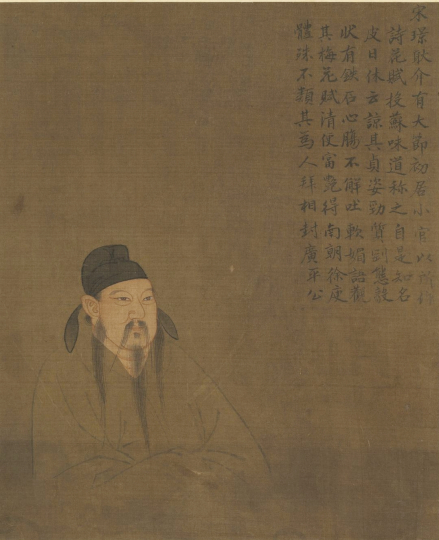 宋璟耿介有大節初居小官以
詩花賦投蘇味道称之自是知名
皮日休云諒其貞姿勁質剛態毅
狀有鉄石心腸不解吐軟媚語觀
其梅花賦清便富豔得南朝徐庾
體殊不類其為人拜相封廣平公